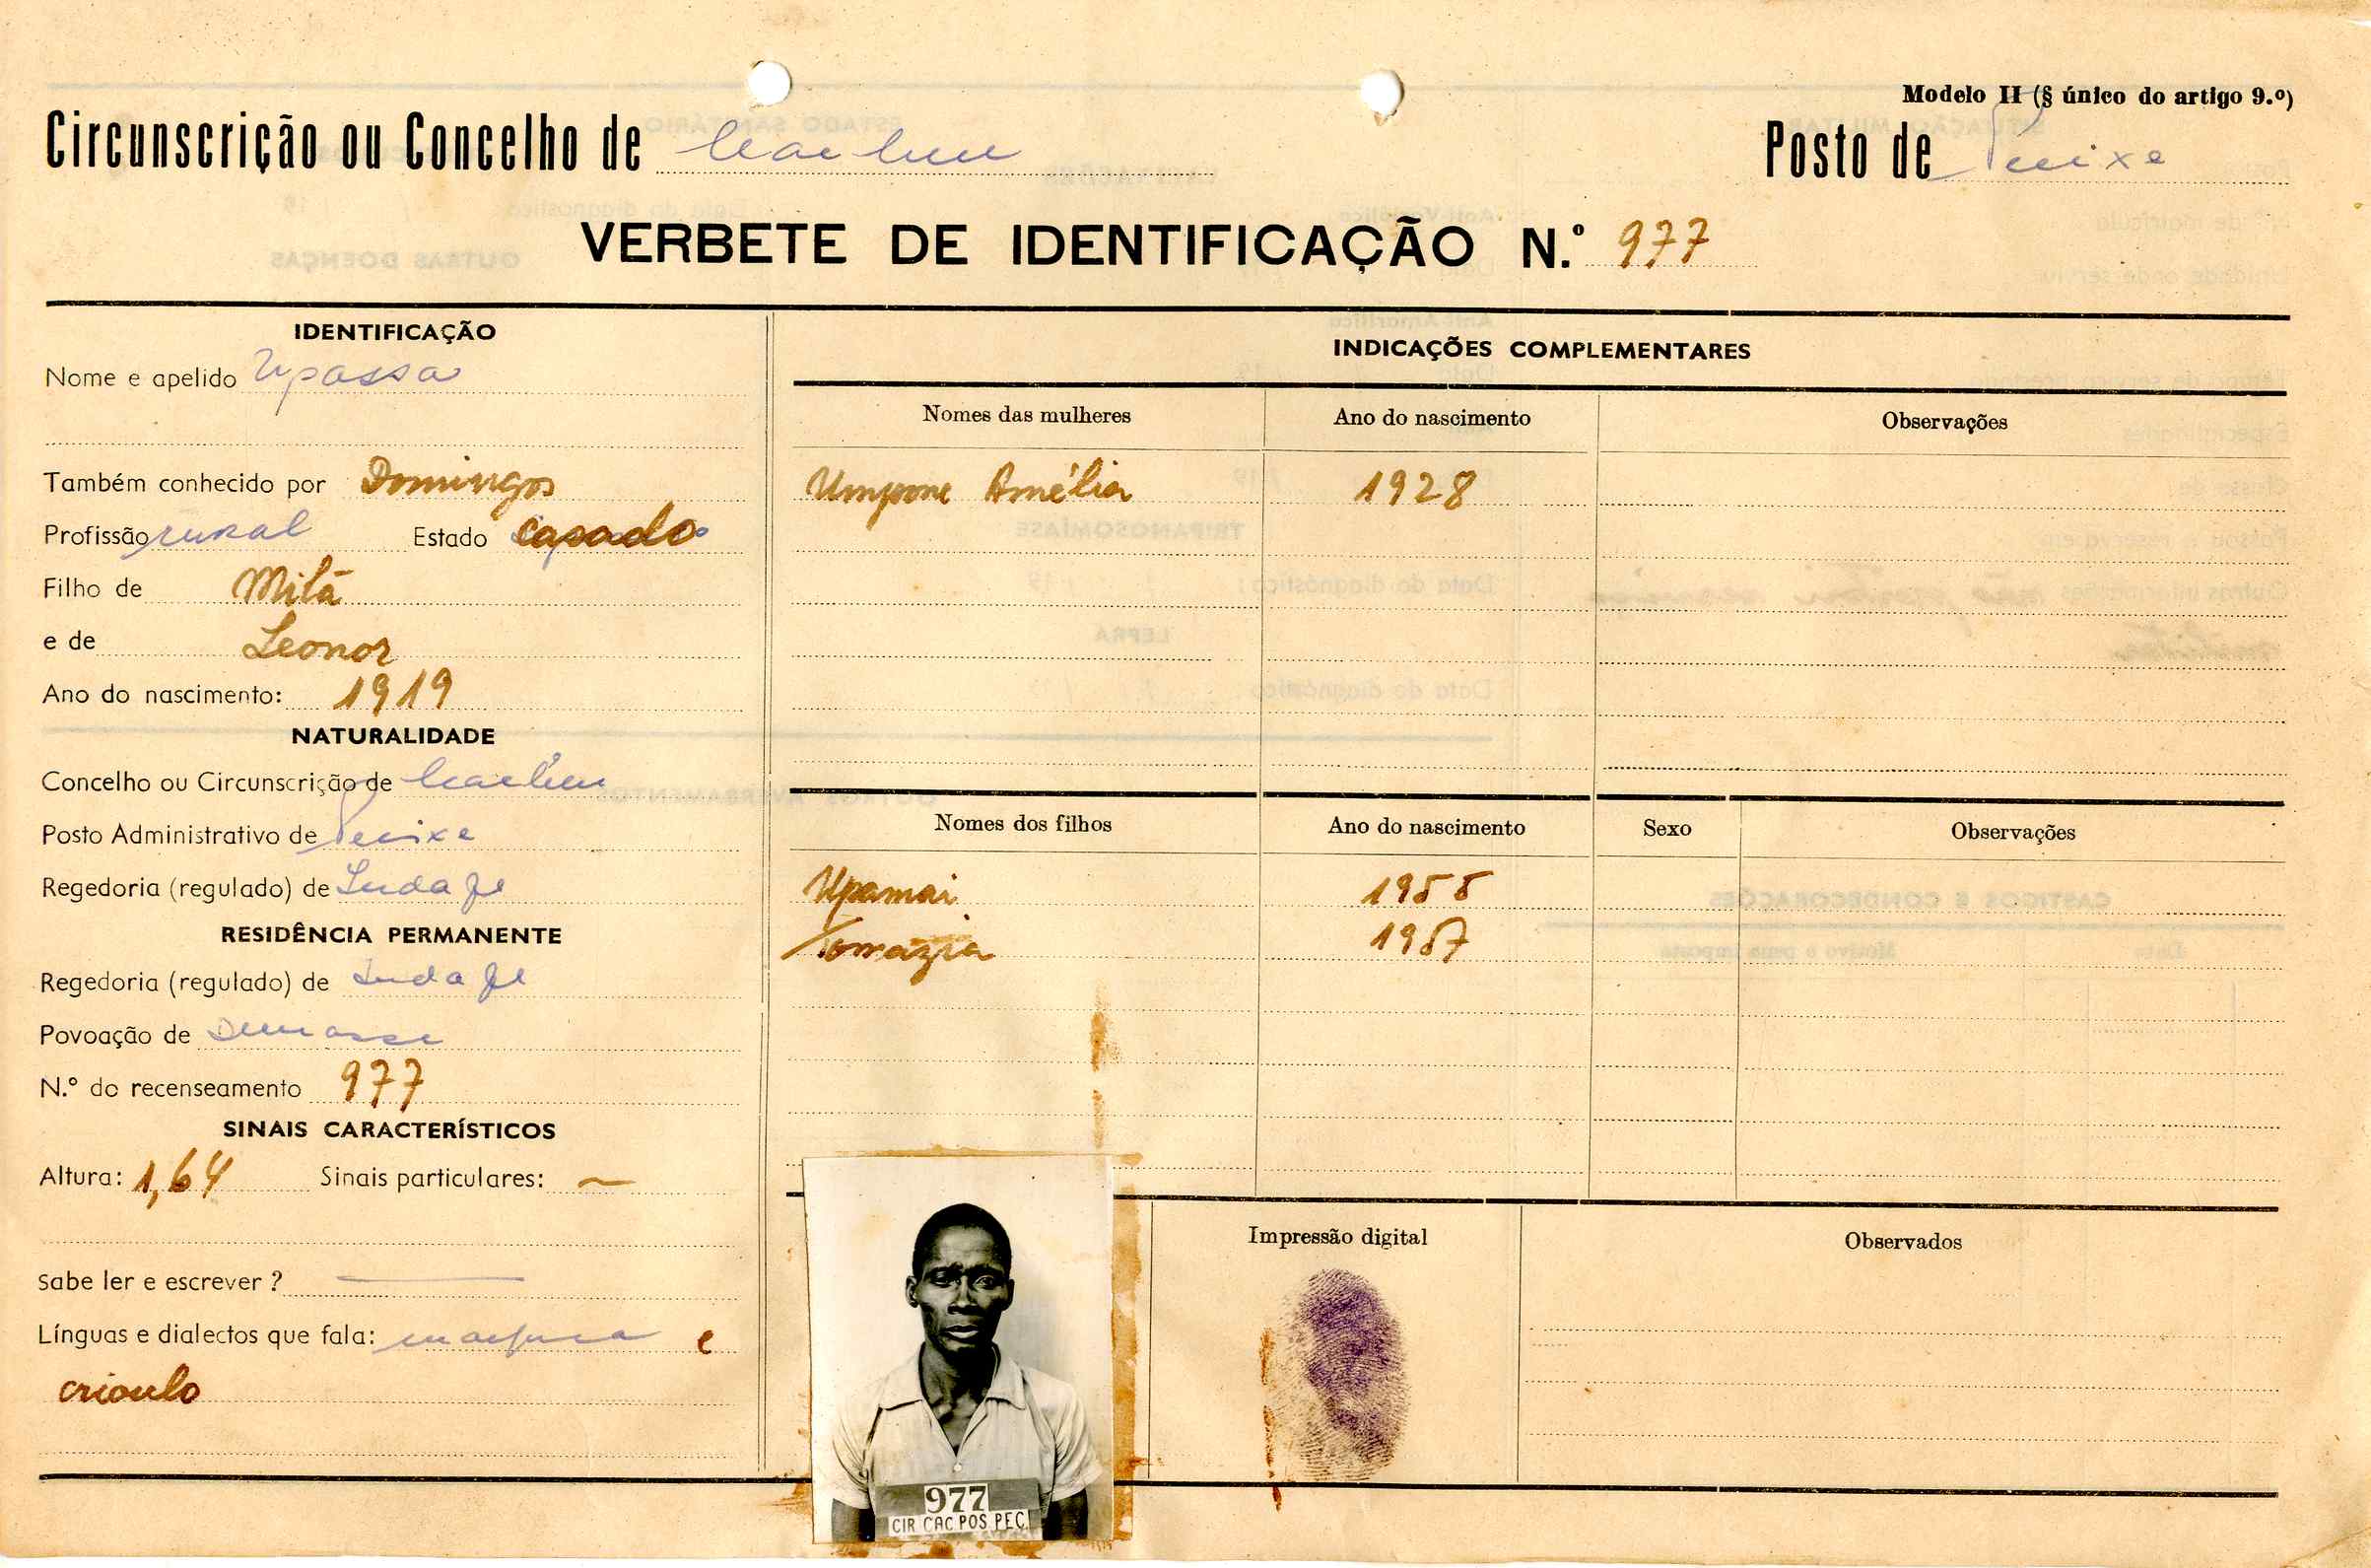 Modelo II (§ único do artigo 9.º)
Circunscrição ou Concelho de Cacheu
Posto de Pecixe
VERBETE DE IDENTIFICAÇÃO N.º 977
IDENTIFICAÇÃO
Nome e apelido Upassa
Também conhecido por Domingos
Profissão rural Estado casado
Filho de Milã
e de Leonor
Ano do nascimento: 1919
NATURALIDADE
Concelho ou Circunscrição de Cacheu
Posto Administrativo de Pecixe
Regedoria (regulado) de
RESIDÊNCIA PERMANENTE
Regedoria (regulado) de
Povoação de
N.º do recenseamento 977
SINAIS CARACTERÍSTICOS
Altura: 1,64 Sinais particulares: ~
Sabe ler e escrever ? —
Línguas e dialectos que fala: e
crioulo
INDICAÇÕES COMPLEMENTARES
Nomes das mulheres Ano do nascimento Observações
Umpone Amélia 1928
Nomes dos filhos Ano do nascimento Sexo Observações
Upamai 1955
Tomázia 1957
Impressão digital Observados
977
CIR CAC POS PEC